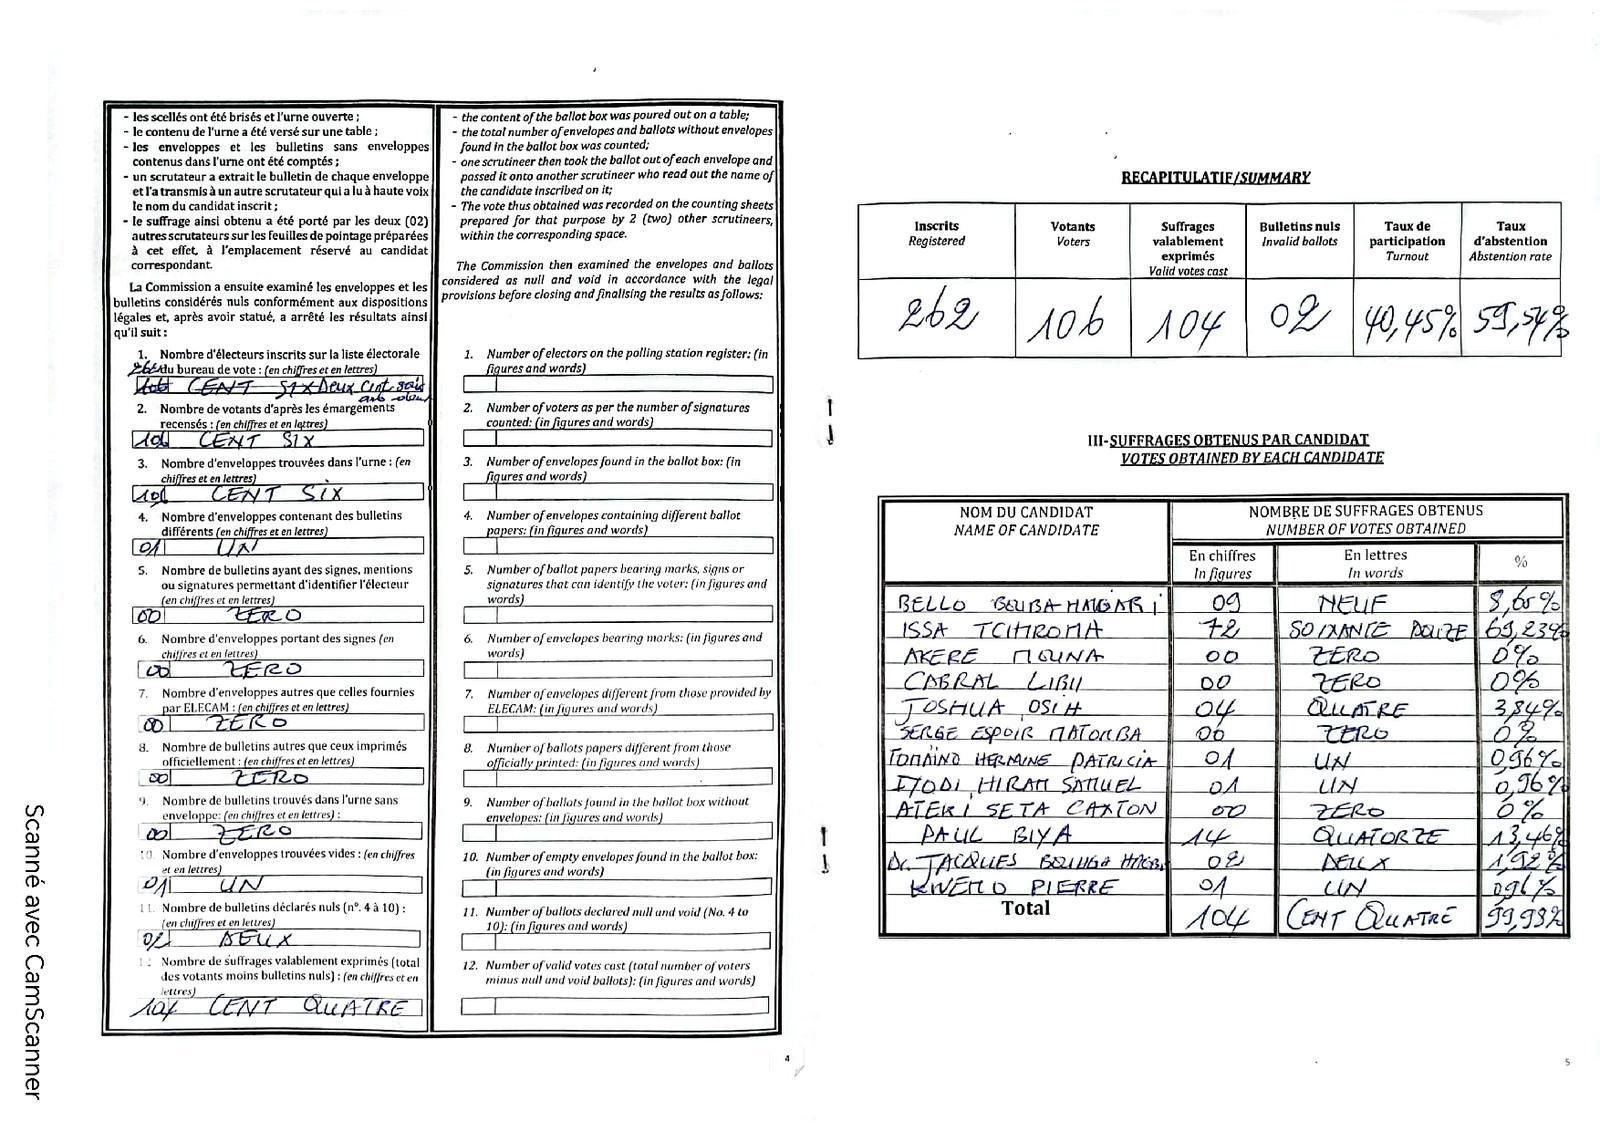 - les scellés ont été brisés et l'urne ouverte ;
- le contenu de l'urne a été versé sur une table ;
- les enveloppes et les bulletins sans enveloppes
contenus dans l'urne ont été comptés ;
- un scrutateur a extrait le bulletin de chaque enveloppe
et l'a transmis à un autre scrutateur qui a lu à haute voix
le nom du candidat inscrit ;
- le suffrage ainsi obtenu a été porté par les deux (02)
autres scrutateurs sur les feuilles de pointage préparées
à cet effet, à l'emplacement réservé au candidat
correspondant.
La Commission a ensuite examiné les enveloppes et les
bulletins considérés nuls conformément aux dispositions
légales et, après avoir statué, a arrêté les résultats ainsi
qu'il suit :
1. Nombre d'électeurs inscrits sur la liste électorale
262 du bureau de vote : (en chiffres et en lettres)
106 CENT SIX Deux Cent soix
ante deux
2. Nombre de votants d'après les émargements
recensés : (en chiffres et en lettres)
106 CENT SIX
3. Nombre d'enveloppes trouvées dans l'urne : (en
chiffres et en lettres)
106 CENT SIX
4. Nombre d'enveloppes contenant des bulletins
différents (en chiffres et en lettres)
01 UN
5. Nombre de bulletins ayant des signes, mentions
ou signatures permettant d'identifier l'électeur
(en chiffres et en lettres)
00 ZERO
6. Nombre d'enveloppes portant des signes (en
chiffres et en lettres)
00 ZERO
7. Nombre d'enveloppes autres que celles fournies
par ELECAM : (en chiffres et en lettres)
00 ZERO
8. Nombre de bulletins autres que ceux imprimés
officiellement : (en chiffres et en lettres)
00 ZERO
9. Nombre de bulletins trouvés dans l'urne sans
enveloppe: (en chiffres et en lettres) :
00 ZERO
10. Nombre d'enveloppes trouvées vides : (en chiffres
et en lettres)
01 UN
11. Nombre de bulletins déclarés nuls (n°. 4 à 10) :
(en chiffres et en lettres)
02 DEUX
12. Nombre de suffrages valablement exprimés (total
des votants moins bulletins nuls) : (en chiffres et en
lettres)
104 CENT QUATRE
- the content of the ballot box was poured out on a table;
- the total number of envelopes and ballots without envelopes
found in the ballot box was counted;
- one scrutineer then took the ballot out of each envelope and
passed it onto another scrutineer who read out the name of
the candidate inscribed on it;
- The vote thus obtained was recorded on the counting sheets
prepared for that purpose by 2 (two) other scrutineers,
within the corresponding space.
The Commission then examined the envelopes and ballots
considered as null and void in accordance with the legal
provisions before closing and finalising the results as follows:
1. Number of electors on the polling station register: (in
figures and words)
2. Number of voters as per the number of signatures
counted: (in figures and words)
3. Number of envelopes found in the ballot box: (in
figures and words)
4. Number of envelopes containing different ballot
papers: (in figures and words)
5. Number of ballot papers bearing marks, signs or
signatures that can identify the voter: (in figures and
words)
6. Number of envelopes bearing marks: (in figures and
words)
7. Number of envelopes different from those provided by
ELECAM: (in figures and words)
8. Number of ballots papers different from those
officially printed: (in figures and words)
9. Number of ballots found in the ballot box without
envelopes: (in figures and words)
10. Number of empty envelopes found in the ballot box:
(in figures and words)
11. Number of ballots declared null and void (No. 4 to
10): (in figures and words)
12. Number of valid votes cast (total number of voters
minus null and void ballots): (in figures and words)
4
Scanné avec CamScanner
RECAPITULATIF/SUMMARY
Inscrits Registered Votants Voters Suffrages valablement exprimés Valid votes cast Bulletins nuls Invalid ballots Taux de participation Turnout Taux d'abstention Abstention rate
262 106 104 02 40,45% 59,54%
III-SUFFRAGES OBTENUS PAR CANDIDAT
VOTES OBTAINED BY EACH CANDIDATE
NOM DU CANDIDAT NOMBRE DE SUFFRAGES OBTENUS
NAME OF CANDIDATE NUMBER OF VOTES OBTAINED
En chiffres En lettres %
In figures In words
BELLO BOUBA MAIGARI 09 NEUF 8,65%
ISSA TCHIROMA 72 SOIXANTE DOUZE 69,23%
AKERE MOUNA 00 ZERO 0%
CABRAL LIBII 00 ZERO 0%
JOSHUA OSIH 04 QUATRE 3,84%
SERGE ESPOIR MATOMBA 00 ZERO 0%
TOMAÏNO HERMINE PATRICIA 01 UN 0,96%
IYODI HIRAM SAMUEL 01 UN 0,96%
ATEKI SETA CAXTON 00 ZERO 0%
PAUL BIYA 14 QUATORZE 13,46%
Dr. JACQUES BOUGHA 02 DEUX 1,92%
KWEMO PIERRE 01 UN 0,96%
Total 104 CENT QUATRE 99,98%
5